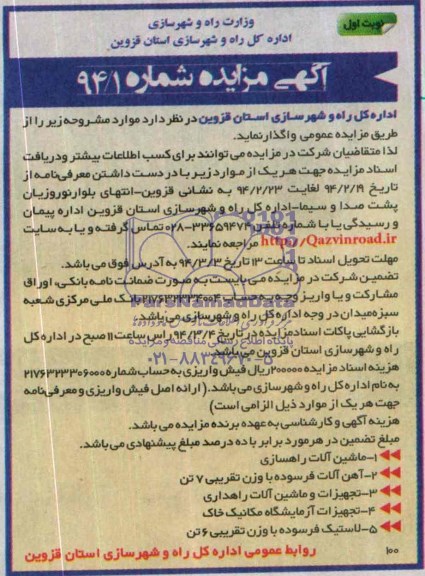 نوبت اول
وزارت راه و شهرسازی
اداره کل راه و شهرسازی استان قزوین
آگهی مزایده شماره ۹۴/۱
اداره کل راه و شهرسازی استان قزوین در نظر دارد موارد مشروحه زیر را از
طریق مزایده عمومی واگذار نماید.
لذا متقاضیان شرکت در مزایده می توانند برای کسب اطلاعات بیشتر و دریافت
اسناد مزایده جهت هر یک از موارد زیر با در دست داشتن معرفی‌نامه از
تاریخ ۹۴/۲/۱۹ لغایت ۹۴/۲/۲۳ به نشانی قزوین-انتهای بلوار نوروزیان
پشت صدا و سیما-اداره کل راه و شهرسازی استان قزوین اداره پیمان
و رسیدگی یا با شماره تلفن ۳۳۶۵۹۴۷۴-۰۲۸ تماس گرفته و یا به سایت
http://Qazvinroad.ir مراجعه نمایند.
مهلت تحویل اسناد تا ساعت ۱۳ تاریخ ۹۴/۳/۳ به آدرس فوق می باشد.
تضمین شرکت در مزایده می بایست به صورت ضمانت نامه بانکی، اوراق
مشارکت و یا واریز وجه به حساب ۲۱۷۶۳۲۳۳۴۰۰۴ بانک ملی مرکزی شعبه
سبزه میدان در وجه اداره کل راه و شهرسازی می باشد.
بازگشایی پاکات اسناد مزایده در تاریخ ۹۴/۳/۴ راس ساعت ۱۱ صبح در اداره کل
راه و شهرسازی استان قزوین می باشد.
هزینه اسناد مزایده ۲۰۰۰۰۰ ریال فیش واریزی به حساب شماره ۲۱۷۶۳۲۳۳۰۶۰۰۰
به نام اداره کل راه و شهرسازی می باشد. (ارائه اصل فیش واریزی و معرفی نامه
جهت هر یک از موارد ذیل الزامی است)
هزینه آگهی و کارشناسی به عهده برنده مزایده می باشد.
مبلغ تضمین در هر مورد برابر با ده درصد مبلغ پیشنهادی می باشد.
۱-ماشین آلات راهسازی
۲-آهن آلات فرسوده با وزن تقریبی ۷ تن
۳-تجهیزات و ماشین آلات راهداری
۴-تجهیزات آزمایشگاه مکانیک خاک
۵-لاستیک فرسوده با وزن تقریبی ۶ تن
۱۰۰ روابط عمومی اداره کل راه و شهرسازی استان قزوین
ParsNamadData
پایگاه اطلاع رسانی مناقصه و مزایده
۰۲۱-۸۸۳۴۹۶۷۰-۵